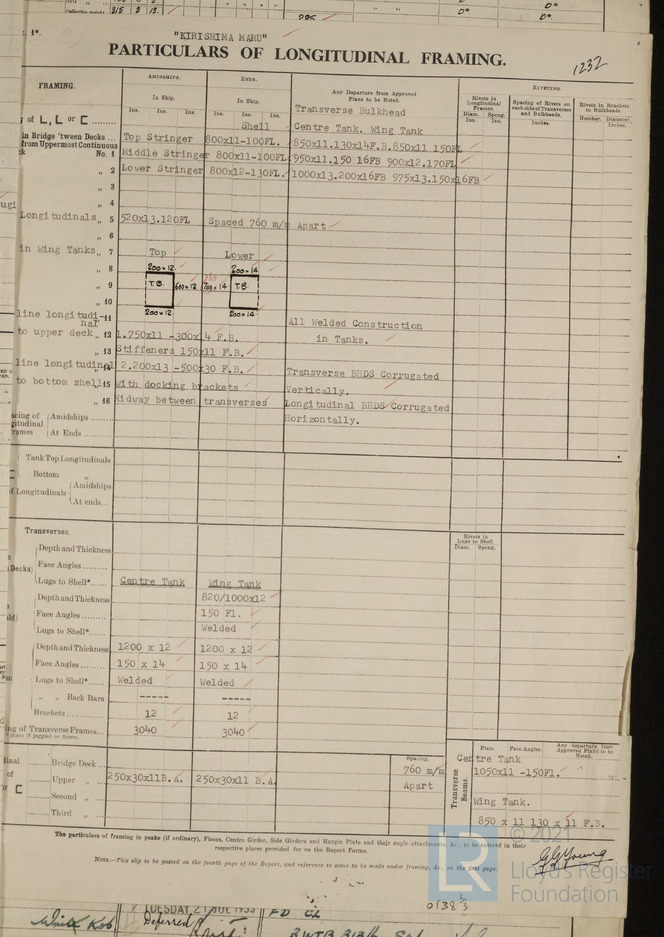 "KIRISHIMA MARU"
PARTICULARS OF LONGITUDINAL FRAMING.
1232
FRAMING.
AMIDSHIPS.
ENDS.
Any Departure from Approved Plans to be Noted.
Rivets in Longitudinal Frames.
RIVETING.
Spacing of Rivets on each side of Transverses and Bulkheads.
Rivets in Brackets to Bulkheads.
In Ship.
In Ship.
Ins. Ins. Ins.
Ins. Ins. Ins.
Diam. Ins.
Speng. Ins.
Inches.
Number.
Diameter, Inches.
Transverse Bulkhead
of L, L or [
Shell
Centre Tank. Wing Tank
in Bridge 'tween Decks
Top Stringer 800x11-100FL.
850x11.130x14F.B.850x11 150FL
from Uppermost Continuous
No. 1 Middle Stringer 800x11-100FL
950x11.150 16FB 900x12.170FL
„ 2 Lower Stringer 800x12-130FL.
1000x13.200x16FB 975x13.150x16FB
„ 3
„ 4
Longitudinals „ 5 520x13.120FL Spaced 760 m/m Apart
„ 6
in Wing Tanks „ 7 Top Lower
„ 8 200×12 200×14
„ 9 T.B. 600×12 700×14 T.B.
„ 10
200×12 200×14
line longitudinal 11 All Welded Construction
to upper deck „ 12 1.750x11 -300x14 F.B. in Tanks.
„ 13 Stiffeners 150x11 F.B.
line longitudinal 14 2.200x13 -500x30 F.B. Transverse BHDS Corrugated
to bottom shell „ 15 With docking brackets Vertically.
„ 16 Midway between transverses Longitudinal BHDS Corrugated
Amidships Horizontally.
At Ends
Tank Top Longitudinals
Bottom „
of Longitudinals Amidships
At ends
Transverses.
Rivets in Lugs to Shell.
Diam. Speng.
Depth and Thickness
Face Angles
Decks)
Lugs to Shell* Centre Tank Wing Tank
Depth and Thickness 820/1000x12
Face Angles 150 Fl.
Lugs to Shell* Welded
Depth and Thickness 1200 x 12 1200 x 12
Face Angles 150 x 14 150 x 14
Lugs to Shell* Welded Welded
„ „ Back Bars ----- -----
Brackets 12 12
of Transverse Frames 3040 3040
* State if joggled or liners.
Plate.
Face Angles.
Any departure from Approved Plans to be Noted.
Spacing.
Bridge Deck
760 m/m
Centre Tank
Upper „ 250x30x11B.A. 250x30x11 B.A. Apart
1050x11 -150Fl.
Transverse Beams.
Second „
Wing Tank.
Third „
850 x 11 130 x 11 F.B.
The particulars of framing in peaks (if ordinary), Floors, Centre Girder, Side Girders and Margin Plate and their angle attachments, &c., to be entered in their
respective places provided for on the Report Forms.
NOTE.—This slip to be posted on the fourth page of the Report, and reference to same to be made under framing, &c., on the first page.
G.G. Young
© 2021
LR
Lloyd's Register
Foundation
TUESDAY 21
Deferred